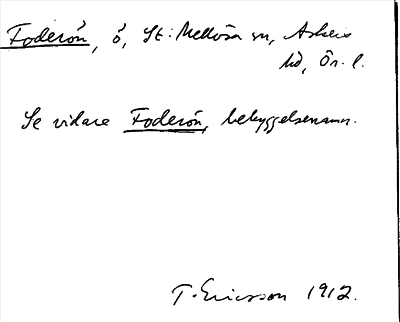 Foderön, ö, St. Mellösa sn, Askers
hd, Ör. l.
Se vidare Foderön, bebyggelsenamn.
T. Ericsson 1912.